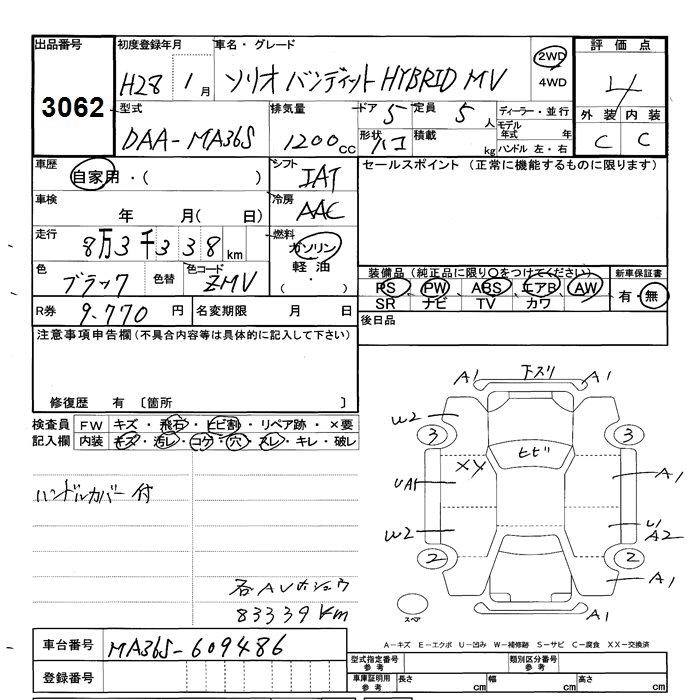 出品番号 初度登録年月 車名・グレード 2WD 4WD 評価点
3062 H28 1月 ソリオ バンディット HYBRID MV 4
型式 排気量 ドア 5 定員 5人 ディーラー・並行 外装 内装
DAA-MA36S 1200cc 形状 ハコ 積載 kg モデル年式 年 C C
ハンドル 左・右
車歴 自家用・( ) シフト IAT セールスポイント (正常に機能するものに限ります)
車検 年 月( 日) 冷房 AAC
走行 8万3千338km 燃料 ガソリン
軽油
( ・ )
色 ブラック 色替 色コード ZMV
装備品(純正品に限り○をつけてください) 新車保証書
PS PW ABS エアB AW 有・無
SR ナビ TV カワ
R券 9.770円 名変期限 月 日 後日品
注意事項申告欄(不具合内容等は具体的に記入して下さい)
修復歴 有 〔箇所 〕
検査員 FW キズ・飛石・ヒビ割・リペア跡・×要
記入欄 内装 キズ・汚レ・コゲ・穴・スレ・キレ・破レ
ハンドルカバー付
83339km
A1 下スリ A1
W2
3 3
ヒビ
XX
UA1 A1
W2 U1
A2
2 2
A1
スペア A1
A-キズ E-エクボ U-凹み W-補修跡 S-サビ C-腐食 XX-交換済
車台番号 MA36S-609486
登録番号
型式指定番号 参考 類別区分番号 参考
車庫証明用 参考 長さ cm 幅 cm 高さ cm